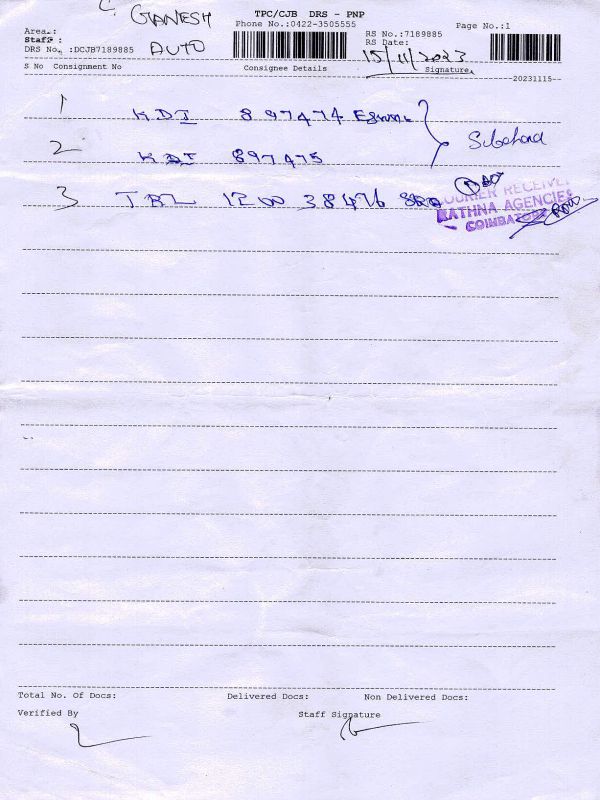 C. GANESH
AUTO
TPC/CJB DRS - PNP
Phone No.:0422-3505555
Page No.:1
Area.:
Staff :
DRS No. :DCJB7189885
RS No.:7189885
RS Date:
15/11/2023
S No Consignment No
Consignee Details
Signature.
20231115
1 KDI 897474
2 KDI 897475
3 TRL 1200 38476
COURIER RECEIVED
RATHNA AGENCIES
COIMBATORE
Total No. Of Docs:
Delivered Docs:
Non Delivered Docs:
Verified By
Staff Signature